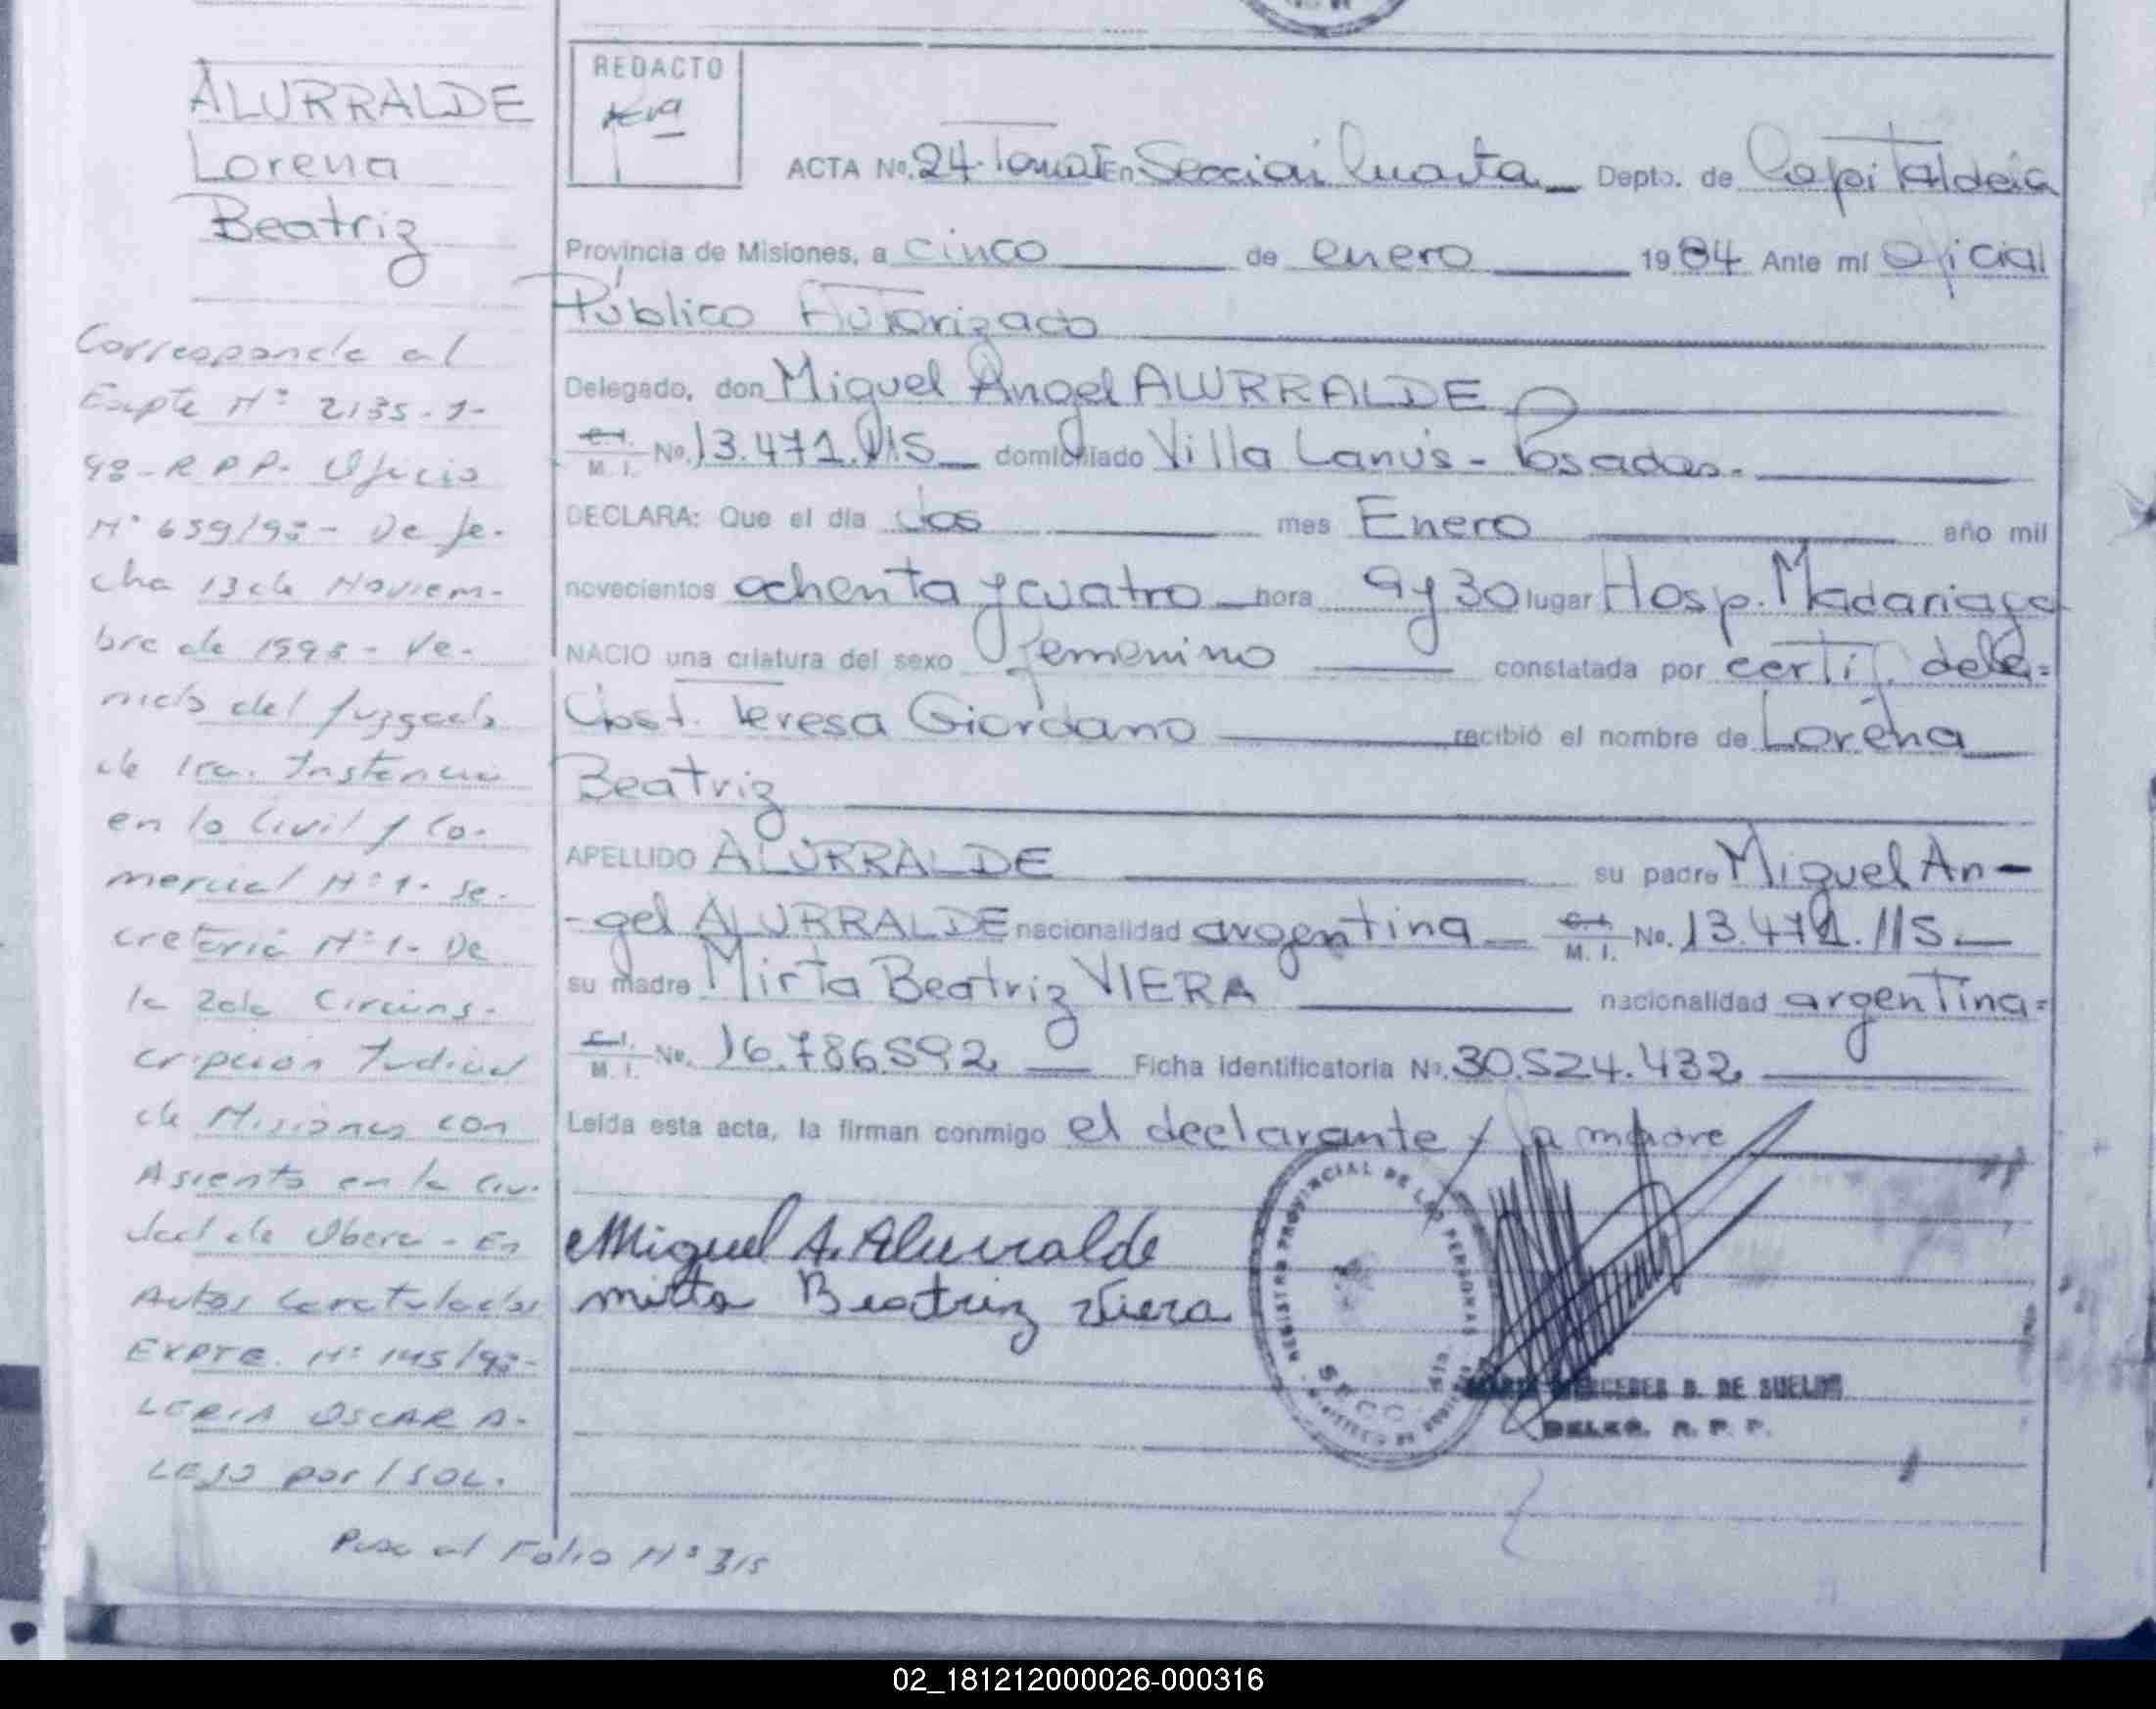 ALURRALDE
Lorena
Beatriz
Corresponde al
Expte Nº 2135-1-
98-R.P.P- Oficio
Nº 659/98- De fe-
cha 13 de Noviem-
bre de 1998- Ve-
nido del Juzgado
de 1ra. Instancia
en lo Civil y Co-
mercial Nº1. Se-
cretaría Nº1- De
la 2da Circuns-
cripción Judicial
de Misiones con
Asiento en la Ciu-
dad de Obera - En
Autos Caratulados
Expte. Nº 145/98-
LERIA OSCAR A-
LEJO por/SOL.
Pasa al Folio Nº 315
REDACTO
ACTA Nº. 24. Tomo I En Sección Cuarta Depto. de Capital de la
Provincia de Misiones, a cinco de enero 1984 Ante mí Oficial
Público Autorizado
Delegado, don Miguel Angel ALURRALDE
C.I. M. I. Nº. 13.471.115 domiciliado Villa Lanús - Posadas.
DECLARA: Que el día dos mes Enero año mil
novecientos ochenta y cuatro hora 9 y 30 lugar Hosp. Madariaga
NACIO una criatura del sexo femenino constatada por certif. de la=
Obst. Teresa Giordano recibió el nombre de Lorena
Beatriz
APELLIDO ALURRALDE su padre Miguel An-
-gel ALURRALDE nacionalidad argentina C.I. M. I. Nº. 13.471.115
su madre Mirta Beatriz VIERA nacionalidad argentina=
C.I. M. I. Nº. 16.786.592 Ficha Identificatoria Nº. 30.524.432
Leída esta acta, la firman conmigo el declarante y la madre
Miguel A. Alurralde
Mirta Beatriz Viera
REGISTRO PROVINCIAL DE LAS PERSONAS
SECC. 4ta.
MERCEDES D. DE SUELDO
DELEG. R. P. P.
02_181212000026-000316